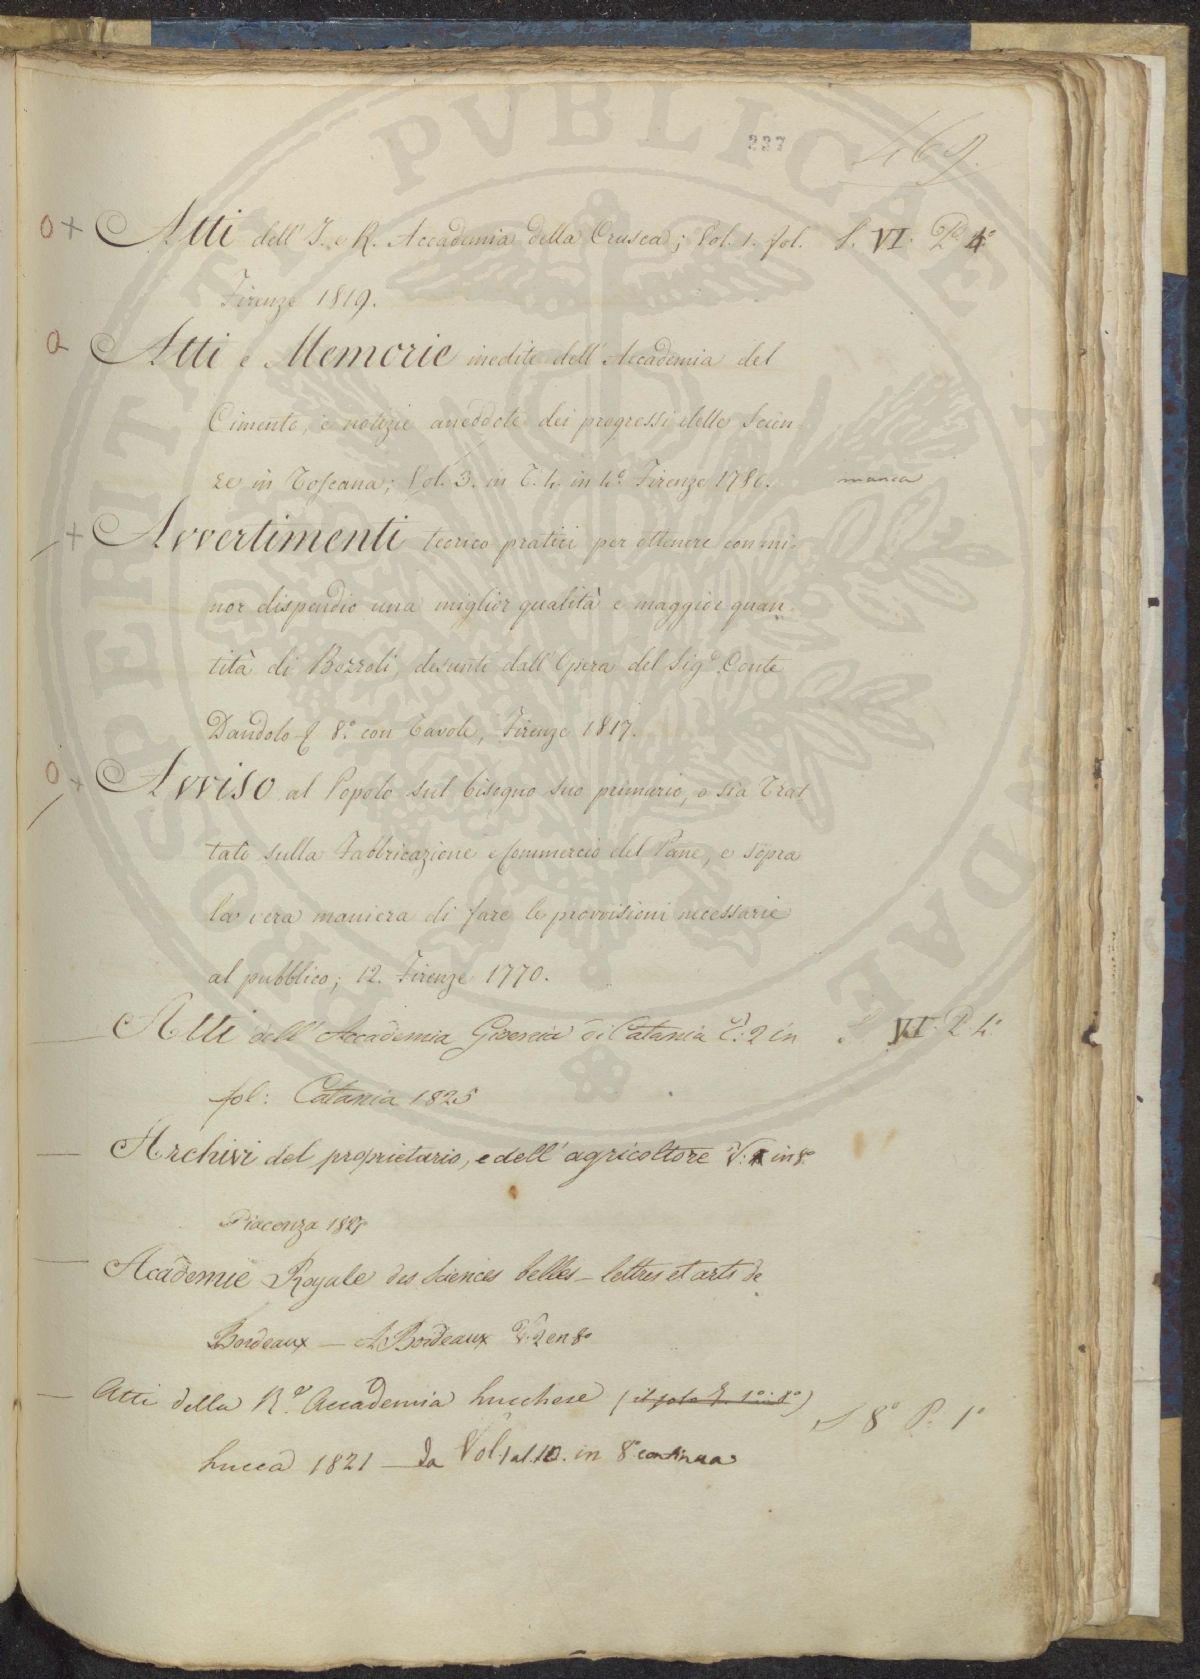 PROSPERITATI PVBLICAE AVGENDAE
227
469.
O + Atti dell' I. e R. Accademia della Crusca; Vol. 1. fol. S. VI. P. 4º
Firenze 1819.
Atti e Memorie inedite dell'Accademia del
Cimento, e notizie aneddote dei progressi delle Scien-
ze in Toscana; Vol. 3. in T. 4. in 4º. Firenze 1780. manca
+ Avvertimenti teorico pratici per ottenere con mi-
nor dispendio una miglior qualità e maggior quan-
tità di Bozzoli, desunti dall'Opera del Sigº. Conte
Dandolo 8º. con Tavole, Firenze 1817.
O + Avviso al Popolo sul bisogno suo primario, o sia Trat-
tato sulla Fabbricazione e Commercio del Pane, e sopra
la vera maniera di fare le provvisioni necessarie
al pubblico; 12. Firenze 1770.
— Atti dell'Accademia Gioenia di Catania T: 2 in VI. P. 4º
fol: Catania 1825
— Archivi del proprietario, e dell'agricoltore V: in 8º
Piacenza
— Académie Royale des Sciences belles-lettres et arts de
Bordeaux — A Bordeaux V. 2 en 8º
— Atti della Rª. Accademia Lucchese (il solo T. 1º in 8º) S 8º P. 1º
Lucca 1821 — Da Vol. 1 al 10. in 8º continua